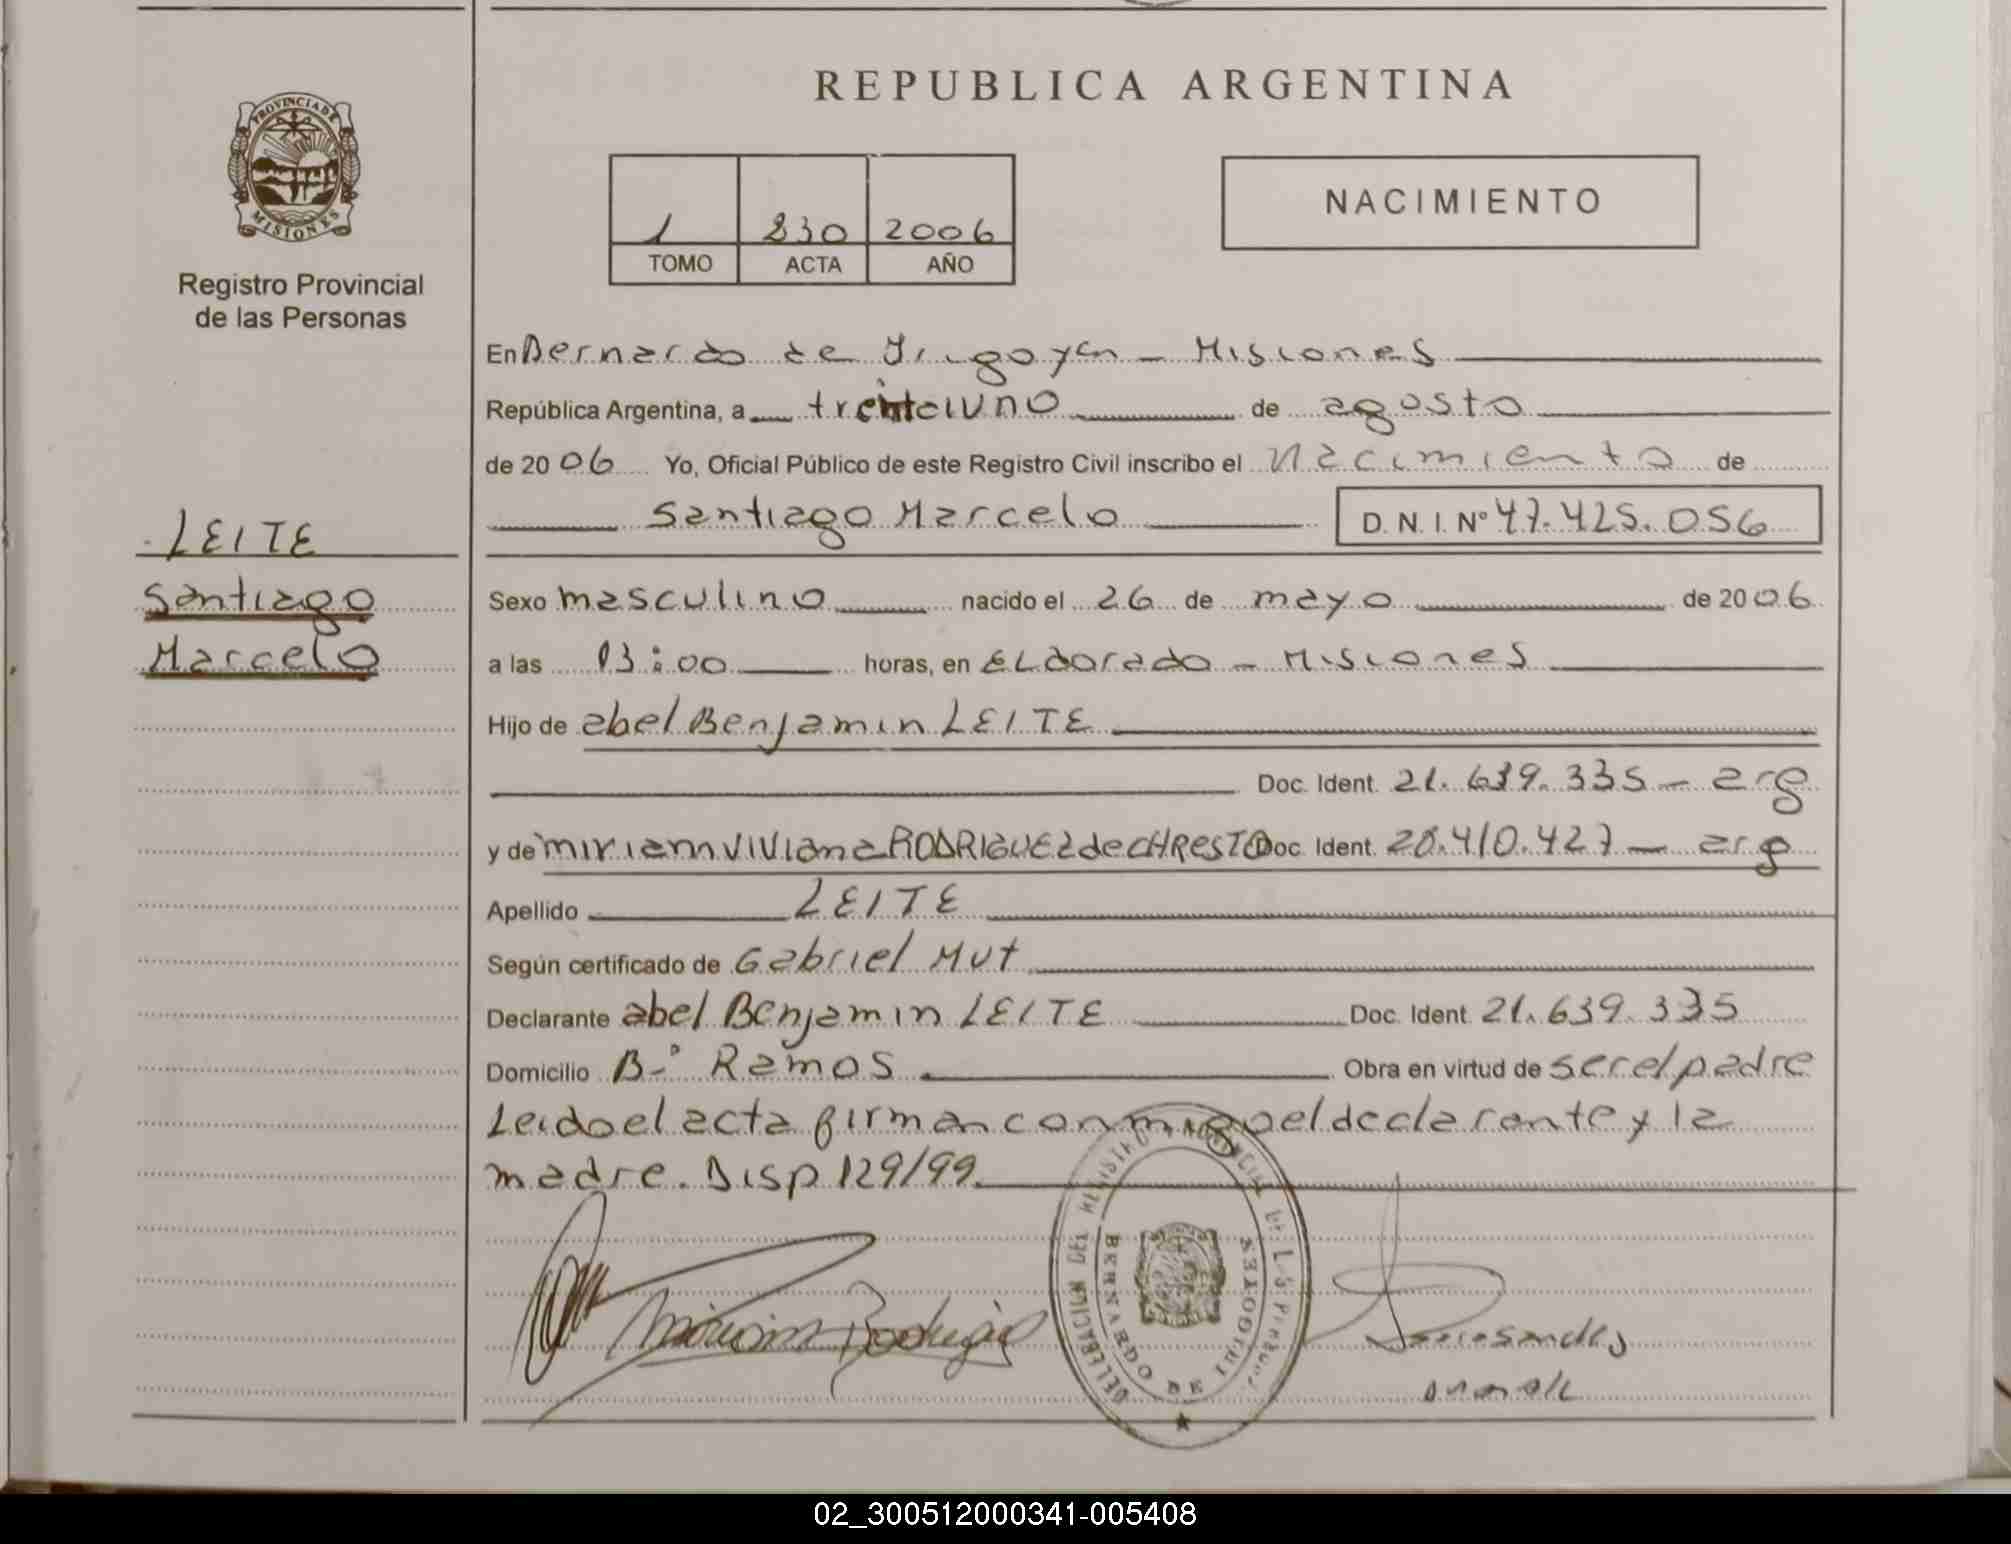 REPUBLICA ARGENTINA
PROVINCIA DE
MISIONES
Registro Provincial
de las Personas
1 230 2006
TOMO ACTA AÑO
NACIMIENTO
LEITE
Santiago
Marcelo
En Bernardo de Irigoyen - Misiones
República Argentina, a treintaiuno de agosto
de 2006 Yo, Oficial Público de este Registro Civil inscribo el nacimiento de
Santiago Marcelo D.N.I. Nº 47.425.056
Sexo masculino nacido el 26 de mayo de 2006
a las 03:00 horas, en ELdorado - Misiones
Hijo de abel Benjamin LEITE
Doc. Ident. 21.639.335 - arg
y de miriam viviana RODRIGUEZ de CHRESTO Doc. Ident. 28.410.427 - arg
Apellido LEITE
Según certificado de Gabriel Mut
Declarante abel Benjamin LEITE Doc. Ident. 21.639.335
Domicilio B.º Ramos Obra en virtud de ser el padre
Leido el acta firman conmigo el declarante y la
madre. Disp 129/99.
DELEGACION DEL REGISTRO PROVINCIAL DE L S PERSONAS
BERNARDO DE IRIGOYEN
Miriam Rodriguez
02_300512000341-005408